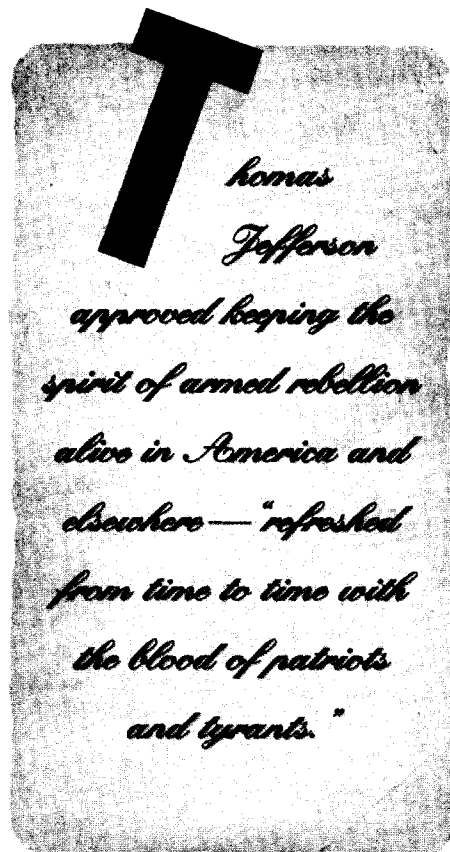 Thomas
Jefferson
approved keeping the
spirit of armed rebellion
alive in America and
elsewhere—“refreshed
from time to time with
the blood of patriots
and tyrants.”